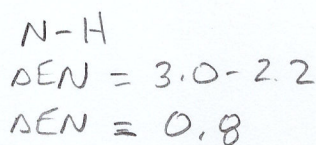 N-H
ΔEN = 3.0-2.2
ΔEN = 0.8